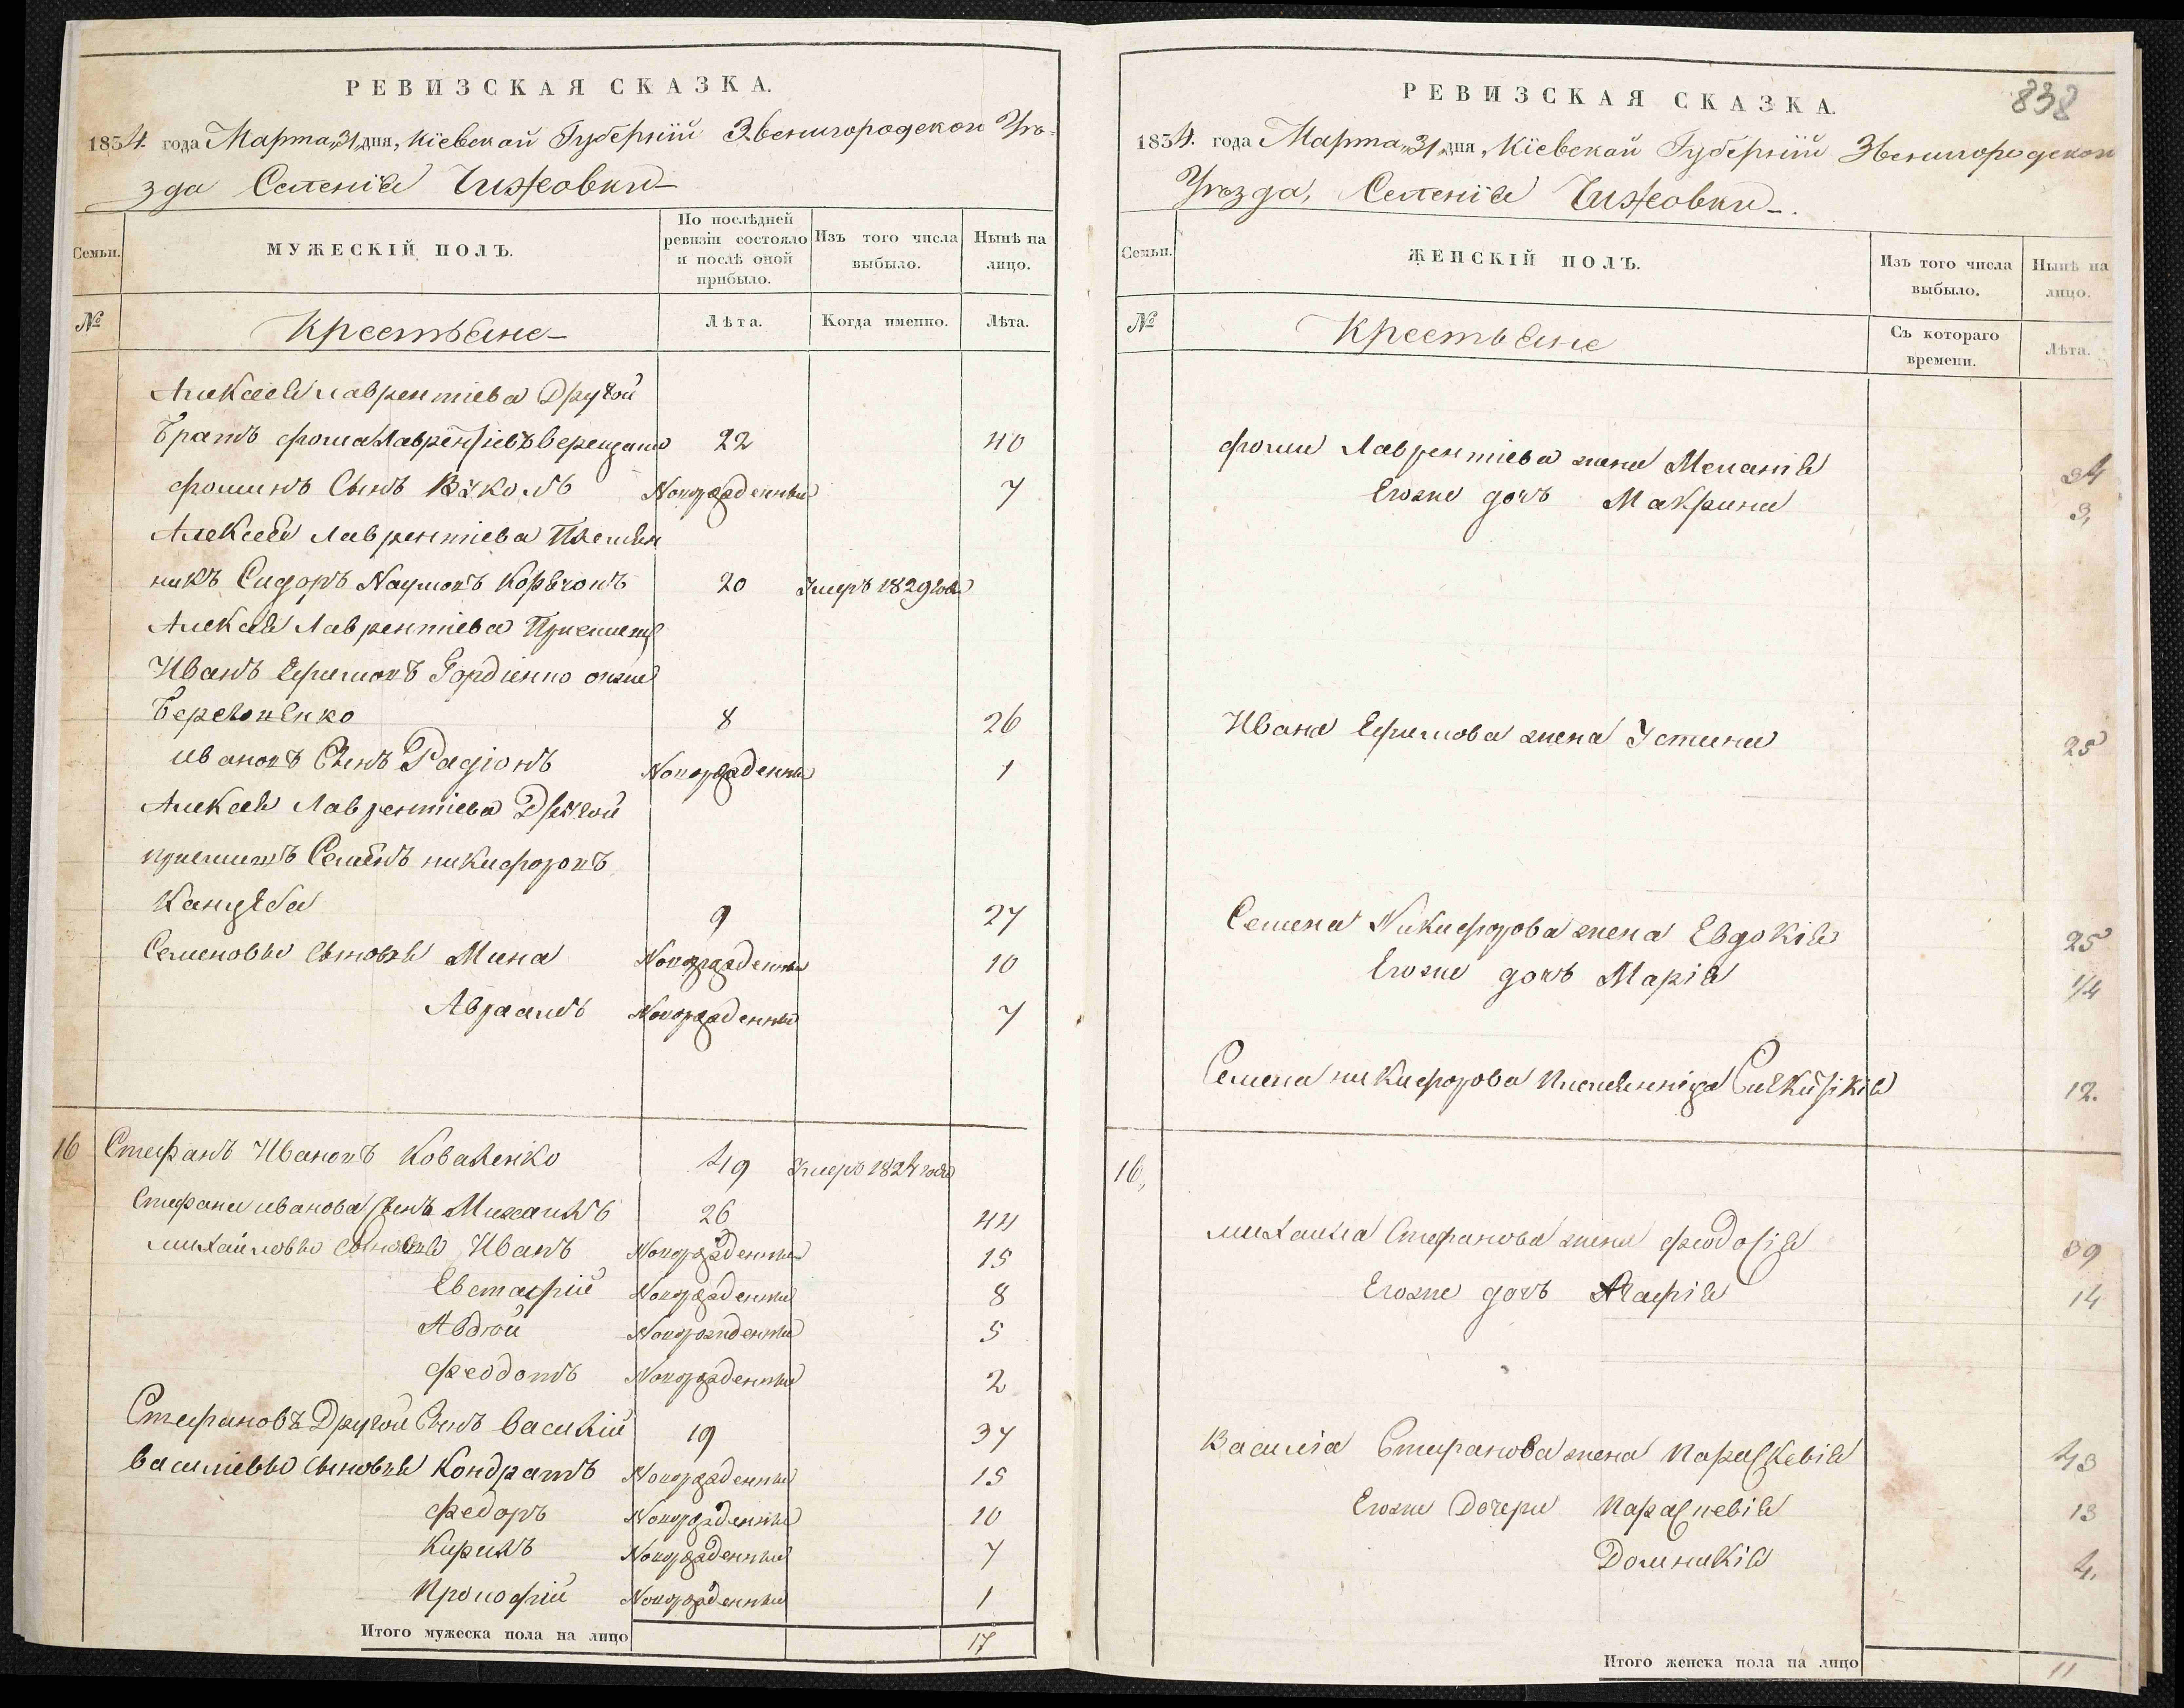 РЕВИЗСКАЯ СКАЗКА.
1834 года Марта „31„ дня, Кіевской Губерніи Звенигородскои Уѣ-
зда Селенія Чижовки
Семьи.
МУЖЕСКІЙ ПОЛЪ.
По послѣдней ревизіи состояло и послѣ оной прибыло.
Изъ того числа выбыло.
Нынѣ на лицо.
№
Крестьяне
Лѣта.
Когда именно.
Лѣта.
Алексея Лаврентіева Другой
Братъ Фома Лаврентіевъ 22 40
Фоминъ Сынъ Вуколъ Новорожденный 7
Алексея Лаврентіева Племян
никъ Сидоръ Наумовъ 20 Умеръ 1829 года
Алексея Лаврентіева Приемышъ
Иванъ Ефимовъ Гордіенко онже
8 26
Ивановъ Сынъ Радіонъ Новорожденный 1
Алексея Лаврентіева Другой
приемышъ Семенъ Никифоровъ
Канцеба 9 27
Семеновы Сыновья Мина Новорожденный 10
Авраамъ Новорожденный 7
16 Стефанъ Ивановъ Коваленко 49 Умеръ 1824 года
Стефана Иванова Сынъ Михаилъ 26 44
Михайловы Сыновья Иванъ Новорожденный 15
Евстафій Новорожденный 8
Авдюй Новорожденный 5
Феодотъ Новорожденный 2
Стефановъ Другой Сынъ Василій 19 37
Василіевы Сыновья Кондратъ Новорожденный 15
Федоръ Новорожденный 10
Кирилъ Новорожденный 7
Прокофій Новорожденный 1
Итого мужеска пола на лицо 17
838
РЕВИЗСКАЯ СКАЗКА.
1834 года Марта „31„ дня, Кіевской Губерніи Звенигородскои
Уѣзда, Селенія Чижовки
Семьи.
ЖЕНСКІЙ ПОЛЪ.
Изъ того числа выбыло.
Нынѣ на лицо.
№
Крестьяне
Съ котораго времени.
Лѣта.
Фомы Лаврентіева жена Меланія 34
Егоже дочь Макрина 3,
Ивана Ефимова жена Устина 25
Семена Никифорова жена Евдокія 25
Егоже дочь Марія 1/4
Семена Никифорова племянница 12.
16,
Михаила Стефанова жена Феодосія 39
Егоже дочь Агафія 14
Василія Стефанова жена Параскевія 43
Егоже Дочери Параскевія 13
Домникія 4,
Итого женска пола на лицо 11